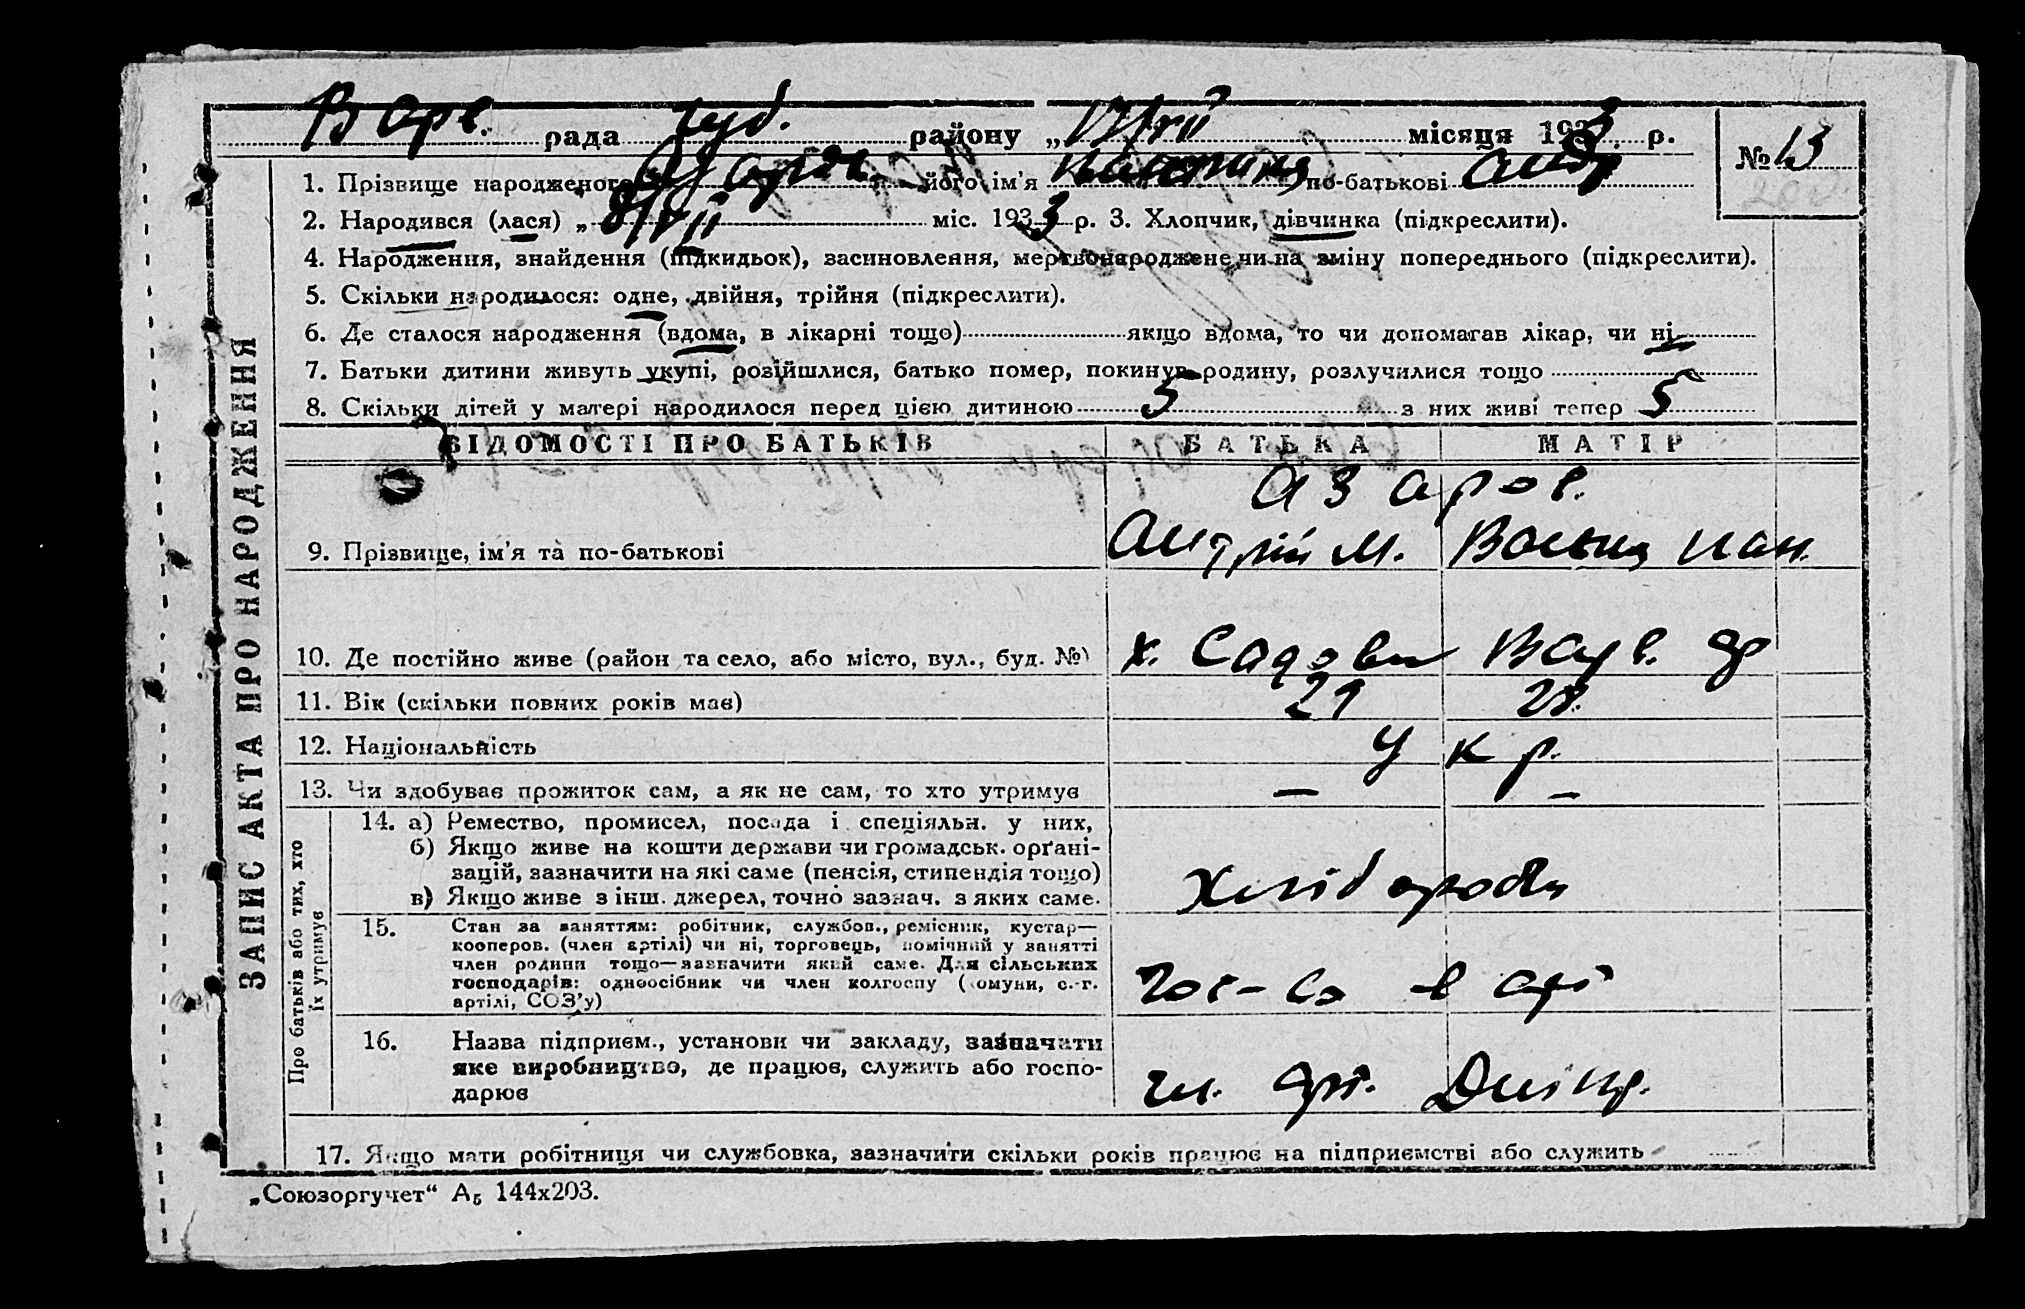 Варв. рада Чуб. району „ місяця 1933 р.
№ 13
1. Прізвище народженого Азаров його ім'я по-батькові Андр
2. Народився (лася) „ 8/VII міс. 1933 р. 3. Хлопчик, дівчинка (підкреслити).
4. Народження, знайдення (підкидьок), засиновлення, мертвонароджене чи на зміну попереднього (підкреслити).
5. Скільки народилося: одне, двійня, трійня (підкреслити).
6. Де сталося народження (вдома, в лікарні тощо) якщо вдома, то чи допомагав лікар, чи ні
7. Батьки дитини живуть укупі, розійшлися, батько помер, покинув родину, розлучилися тощо
8. Скільки дітей у матері народилося перед цією дитиною 5 з них живі тепер 5
ЗАПИС АКТА ПРО НАРОДЖЕННЯ
ВІДОМОСТІ ПРО БАТЬКІВ БАТЬКА МАТІР
Азаров.
9. Прізвище, ім'я та по-батькові Андрій М.
10. Де постійно живе (район та село, або місто, вул., буд. №) х. Садови Варв. др
11. Вік (скільки повних років має) 29 28.
12. Національність Укр.
13. Чи здобуває прожиток сам, а як не сам, то хто утримує — —
Про батьків або тих, хто їх утримує
14. а) Ремество, промисел, посада і спеціяльн. у них,
б) Якщо живе на кошти держави чи громадськ. орґані-
зацій, зазначити на які саме (пенсія, стипендія тощо) Хлібороби
в) Якщо живе з інш. джерел, точно зазнач. з яких саме.
15. Стан за заняттям: робітник, службов., ремісник, кустар—
кооперов. (член артілі) чи ні, торговець, помічний у занятті
член родини тощо—зазначити який саме. Для сільських
господарів: одноосібник чи член колгоспу (комуни, с.-г.
артілі, СОЗ'у) Гос-во в арт
16. Назва підприєм., установи чи закладу, зазначати
яке виробництво, де працює, служить або госпо-
дарює чл. арт. Дніпр.
17. Якщо мати робітниця чи службовка, зазначити скільки років працює на підприємстві або служить
„Союзоргучет“ А₅ 144х203.